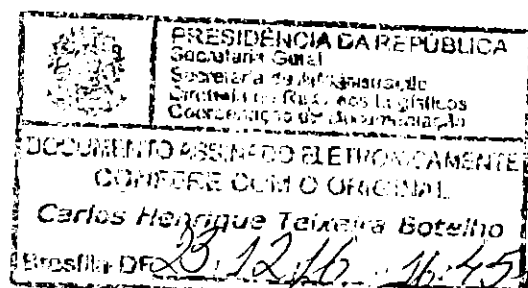 PRESIDÊNCIA DA REPÚBLICA
Secretaria Geral
Secretaria de Administração
Diretoria de Recursos Logísticos
Coordenação de Documentação
DOCUMENTO ASSINADO ELETRONICAMENTE
CONFERE COM O ORIGINAL
Carlos Henrique Teixeira Botelho
Brasília-DF 23.12.16 16:45